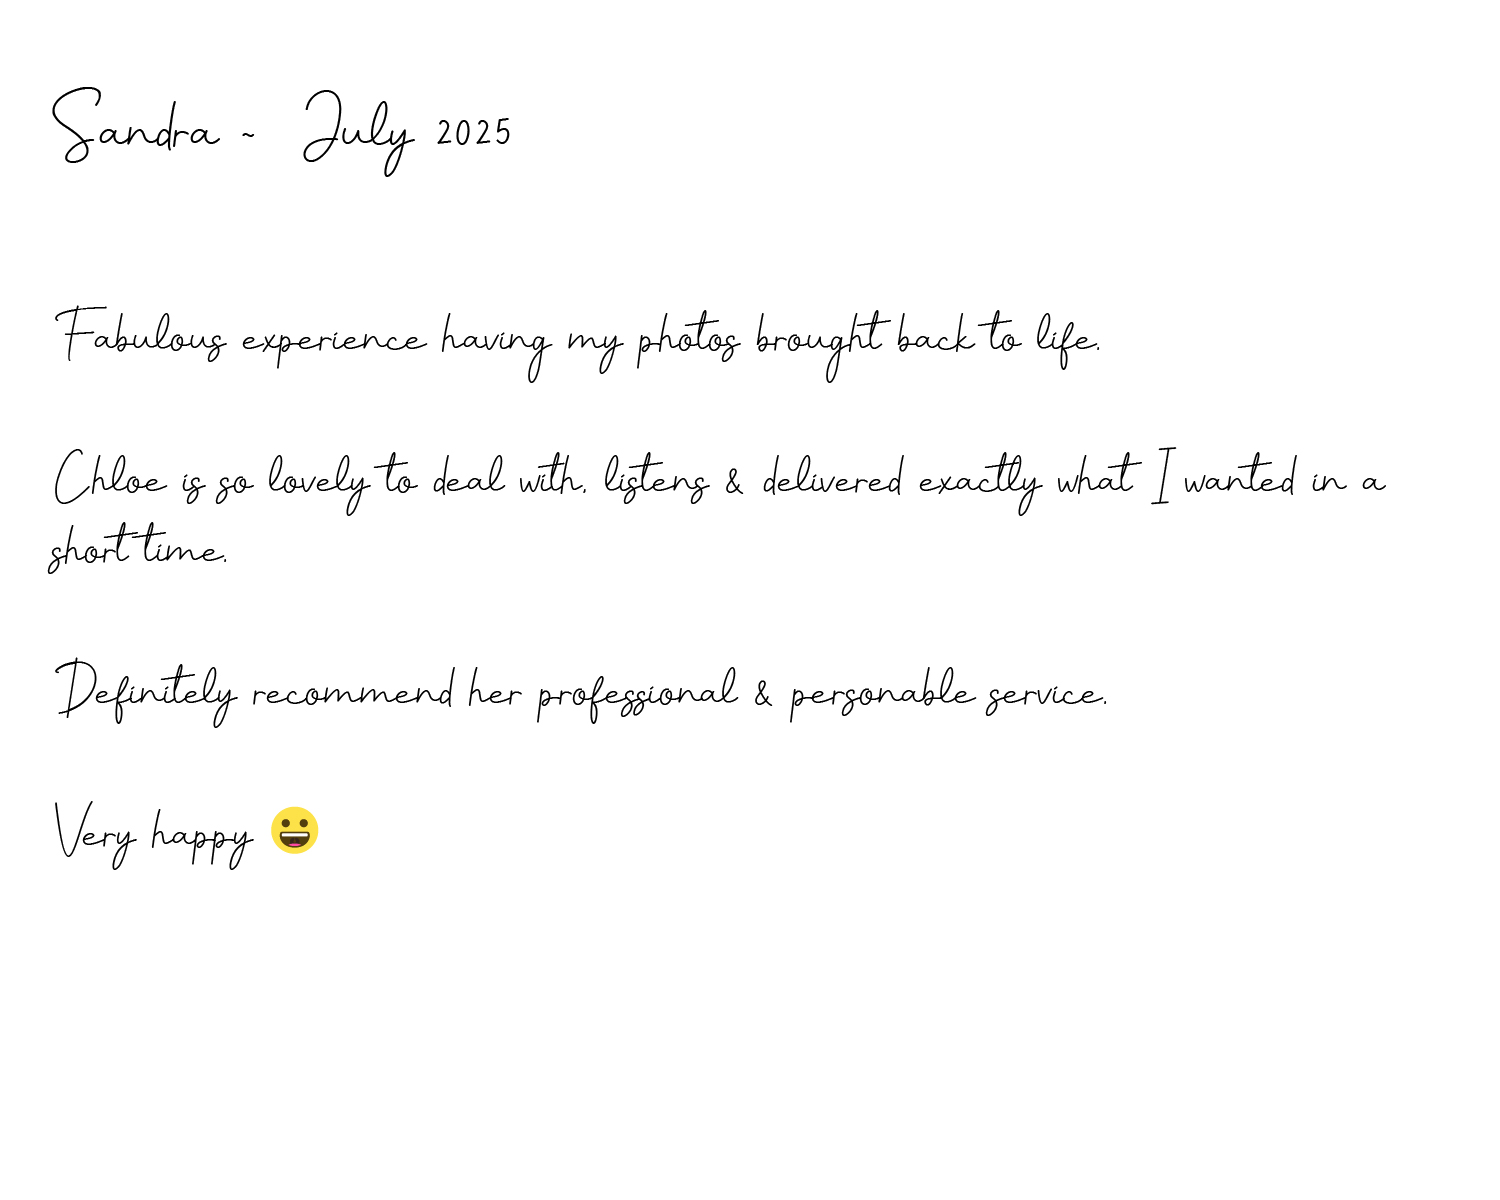 Sandra ~ July 2025
Fabulous experience having my photos brought back to life.
Chloe is so lovely to deal with, listens & delivered exactly what I wanted in a
short time.
Definitely recommend her professional & personable service.
Very happy 😀